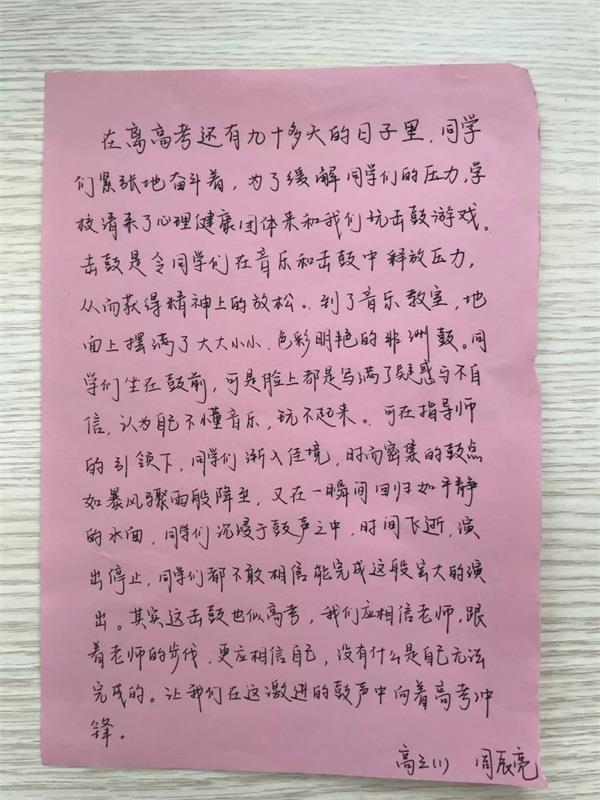 在离高考还有九十多天的日子里，同学
们紧张地奋斗着，为了缓解同学们的压力，学
校请来了心理健康团体来和我们玩击鼓游戏。
击鼓是令同学们在音乐和击鼓中释放压力，
从而获得精神上的放松。到了音乐教室，地
面上摆满了大大小小、色彩明艳的非洲鼓。同
学们坐在鼓前，可是脸上都是写满了疑惑与不自
信，认为自己不懂音乐，玩不起来。可在指导师
的引领下，同学们渐入佳境，时而密集的鼓点
如暴风骤雨般降至，又在一瞬间回归如平静
的水面，同学们沉浸于鼓声之中，时间飞逝，演
出停止，同学们都不敢相信能完成这般宏大的演
出。其实这击鼓也似高考，我们应相信老师，跟
着老师的步伐，更应相信自己，没有什么是自己无法
完成的。让我们在这激进的鼓声中向着高考冲
锋。
高三(1) 周辰亮